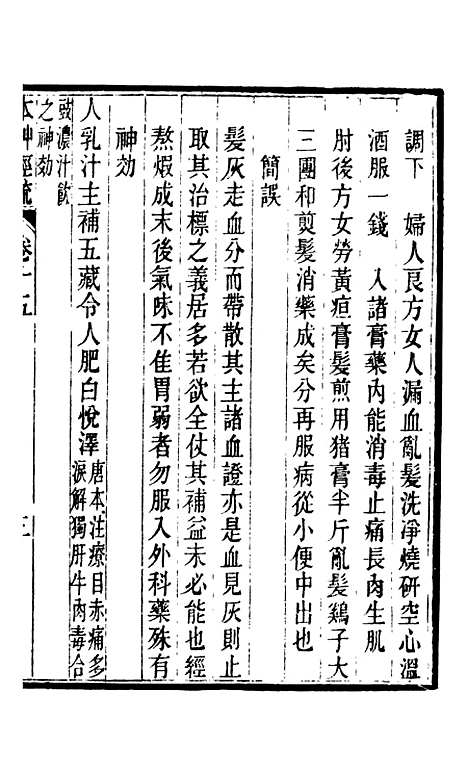 調下　婦人良方女人漏血亂髮洗淨燒硏空心溫
酒服一錢　入諸膏藥內能消毒止痛長肉生肌
肘後方女勞黃疸膏髮煎用猪膏半斤亂髮鷄子大
三團和煎髮消藥成矣分再服病從小便中出也
簡誤
髮灰走血分而帶散其主諸血證亦是血見灰則止
取其治標之義居多若欲全仗其補益未必能也經
熬煆成末後氣味不佳胃弱者勿服入外科藥殊有
神効
人乳汁主補五藏令人肥白悅澤唐本注療目赤痛多
淚解獨肝牛肉毒合
豉濃汁飲
之神効
本艸經疏　卷十五　三